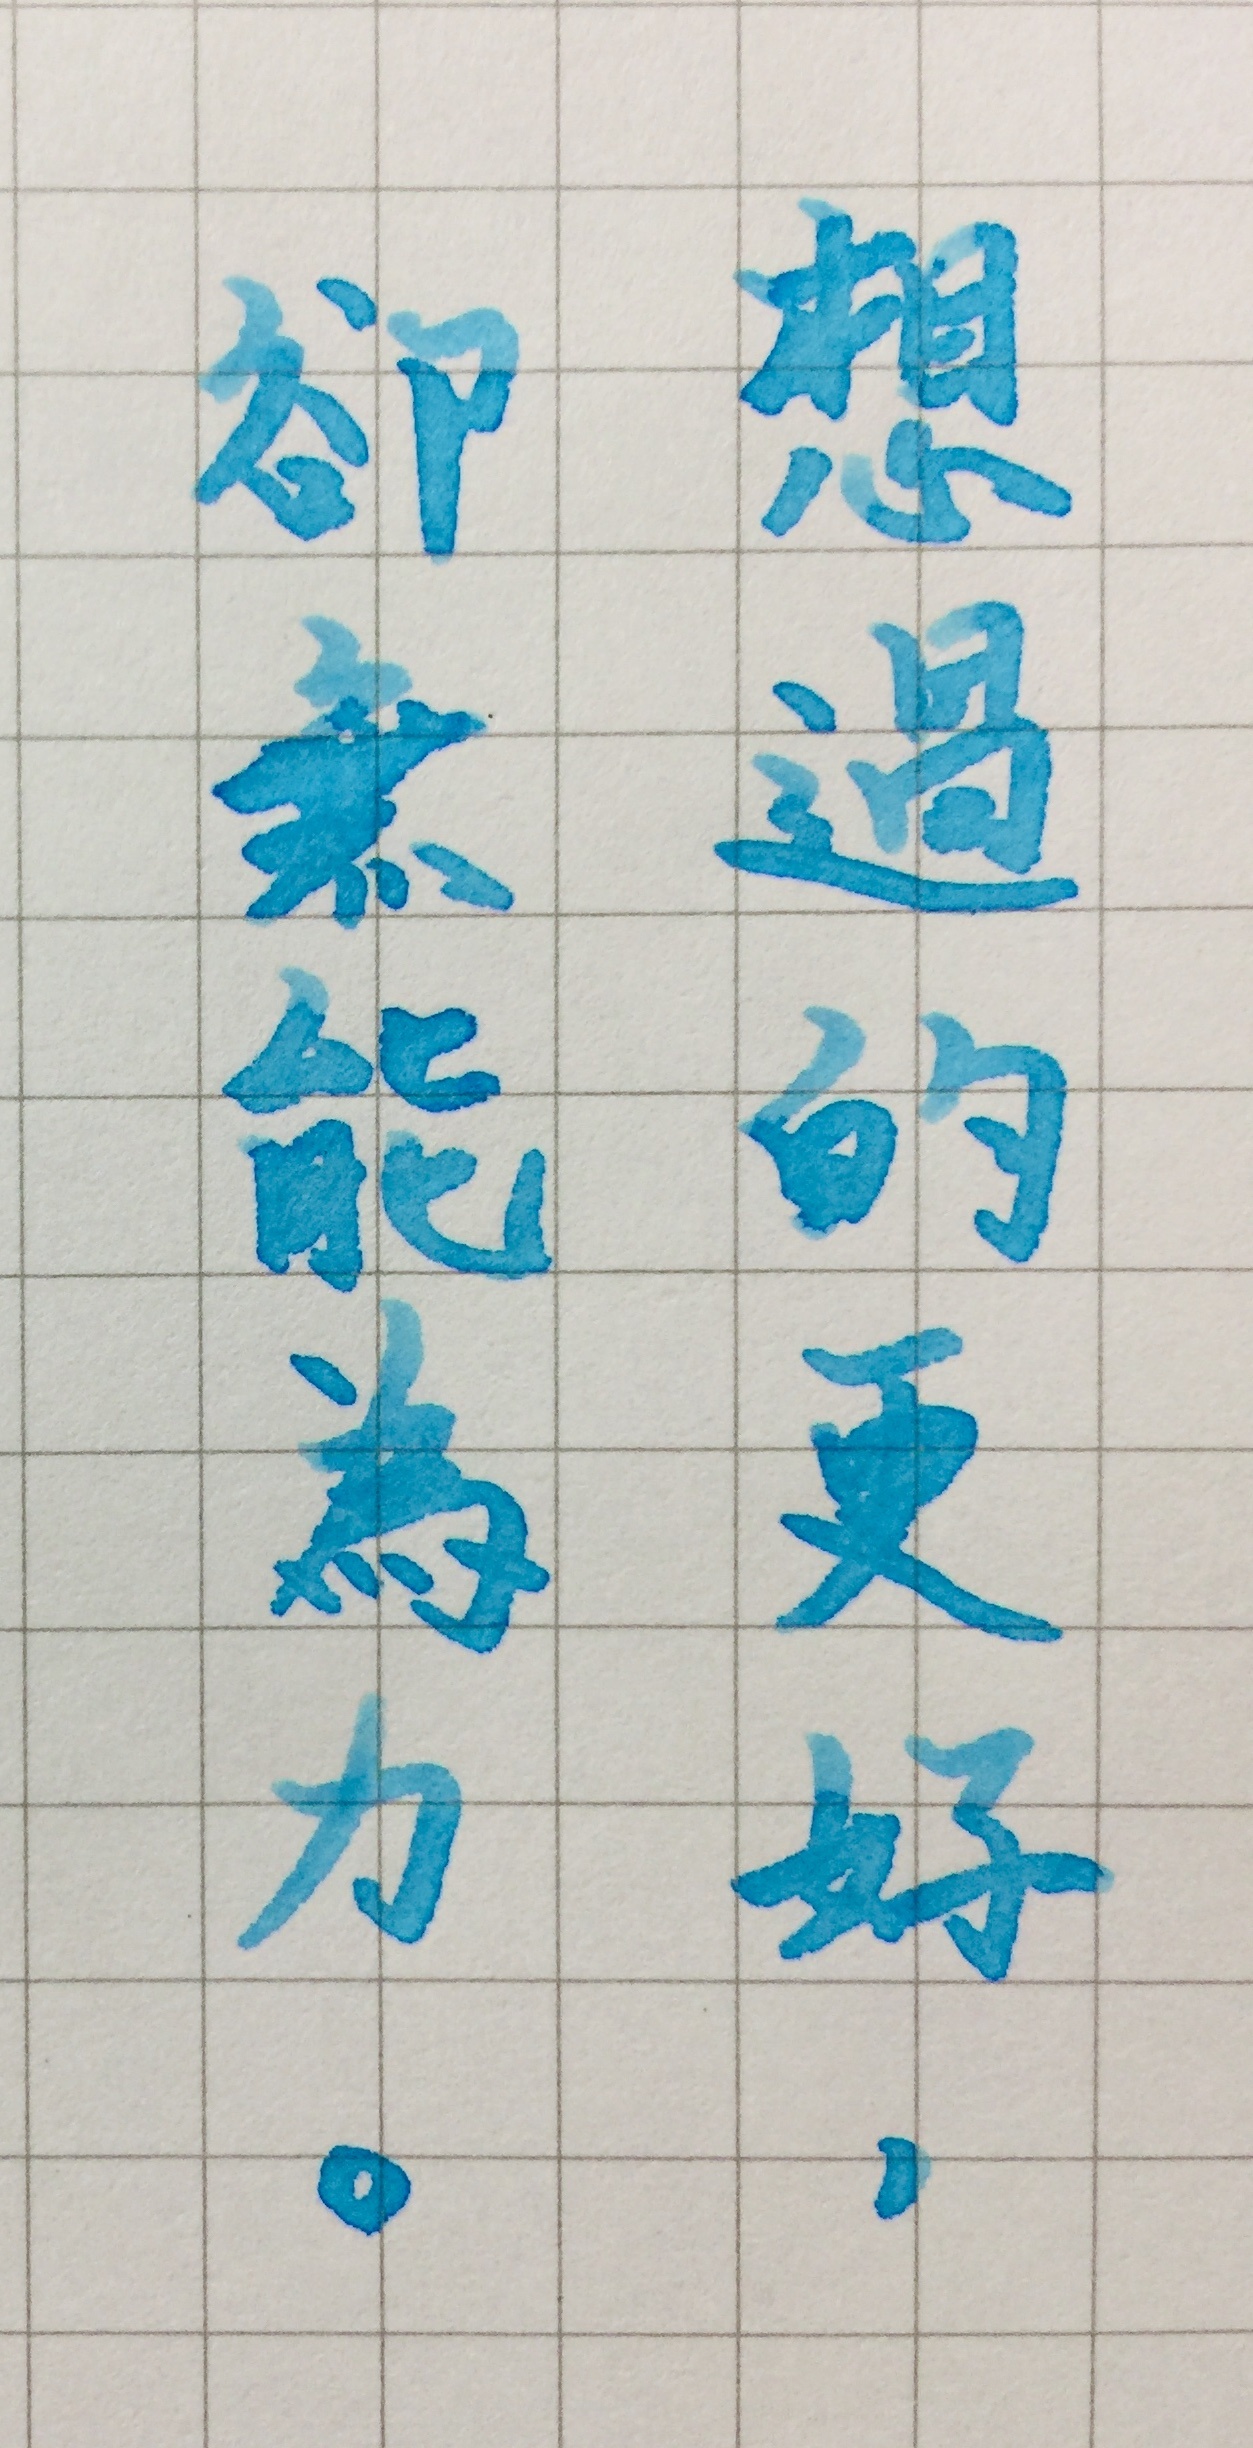 想過的更好，
卻無能為力。